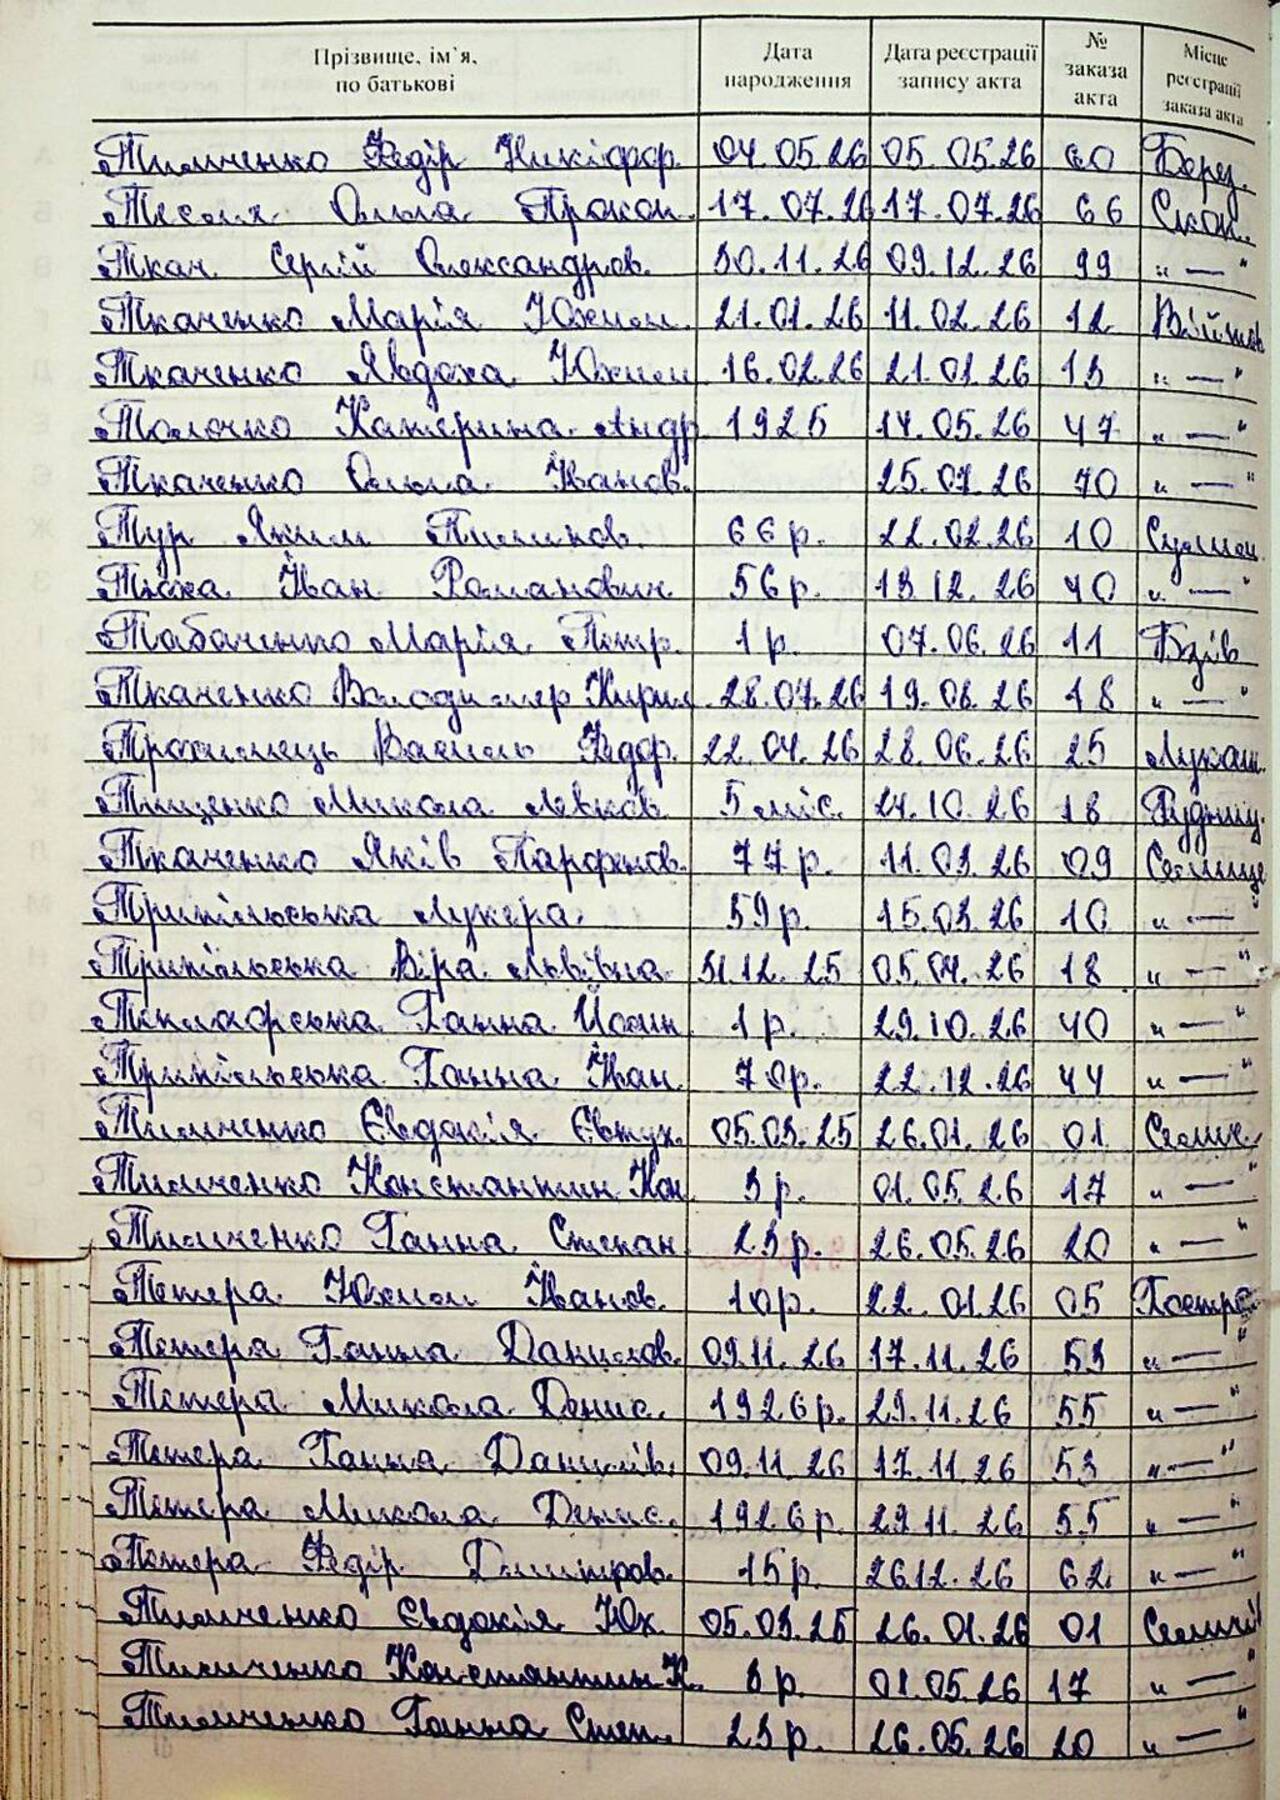 Прізвище, ім`я, по батькові Дата народження Дата реєстрації запису акта № заказа акта Місце реєстрації заказа акта
Тимченко Федір Никіфор. 04.05.26 05.05.26 60 Берез.
Тесля Ольга Прокоп. 17.07.26 17.07.26 66 Скоп.
Ткач Сергій Олександров. 30.11.26 09.12.26 99 "—"
Ткаченко Марія Юхим. 21.01.26 11.02.26 12 Війтов
Ткаченко Явдоха Юхим 16.02.26 21.01.26 13 "—"
Толочко Катерина Андр. 1925 14.05.26 47 "—"
Ткаченко Ольга Іванов. 25.07.26 70 "—"
Тур Яким Пилипов. 66 р. 22.02.26 10
Іван Романович 56 р. 13.12.26 40 "—"
Табаченко Марія Петр. 1 р. 07.06.26 11 Бзів
Ткаченко Володимер Кирил. 28.07.26 19.08.26 18 "—"
Трохимець Василь Федор. 22.04.26 28.06.26 25 Лукаш.
Тищенко Микола Левков. 5 міс. 24.10.26 18 Рудниц.
Ткаченко Яків Парфенов. 77 р. 11.03.26 09 Селище
Трипільська Лукера. 59 р. 15.03.26 10 "—"
Трипільська Віра Львівна 31.12.25 05.04.26 18 "—"
Ганна Йосип. 1 р. 29.10.26 40 "—"
Трипільська Ганна Іван. 70 р. 22.12.26 44 "—"
Тимченко Євдокія Євтух. 05.03.25 26.01.26 01
Тимченко Константин Кон. 3 р. 01.05.26 17 "—"
Тимченко Ганна Степан 23 р. 26.05.26 20 "—"
Тетера Юхим Іванов. 10 р. 22.01.26 05 Гостро
Тетера Ганна Данилов. 09.11.26 17.11.26 53 "—"
Тетера Микола Денис. 1926 р. 29.11.26 55 "—"
Тетера Ганна Данилів. 09.11.26 17.11.26 53 "—"
Тетера Микола Денис. 1926 р. 29.11.26 55 "—"
Тетера Федір Дмитров. 15 р. 26.12.26 62 "—"
Тимченко Євдокія Юх. 05.03.25 26.01.26 01
Тимченко Константин К. 3 р. 01.05.26 17 "—"
Тимченко Ганна Степ. 23 р. 26.05.26 20 "—"